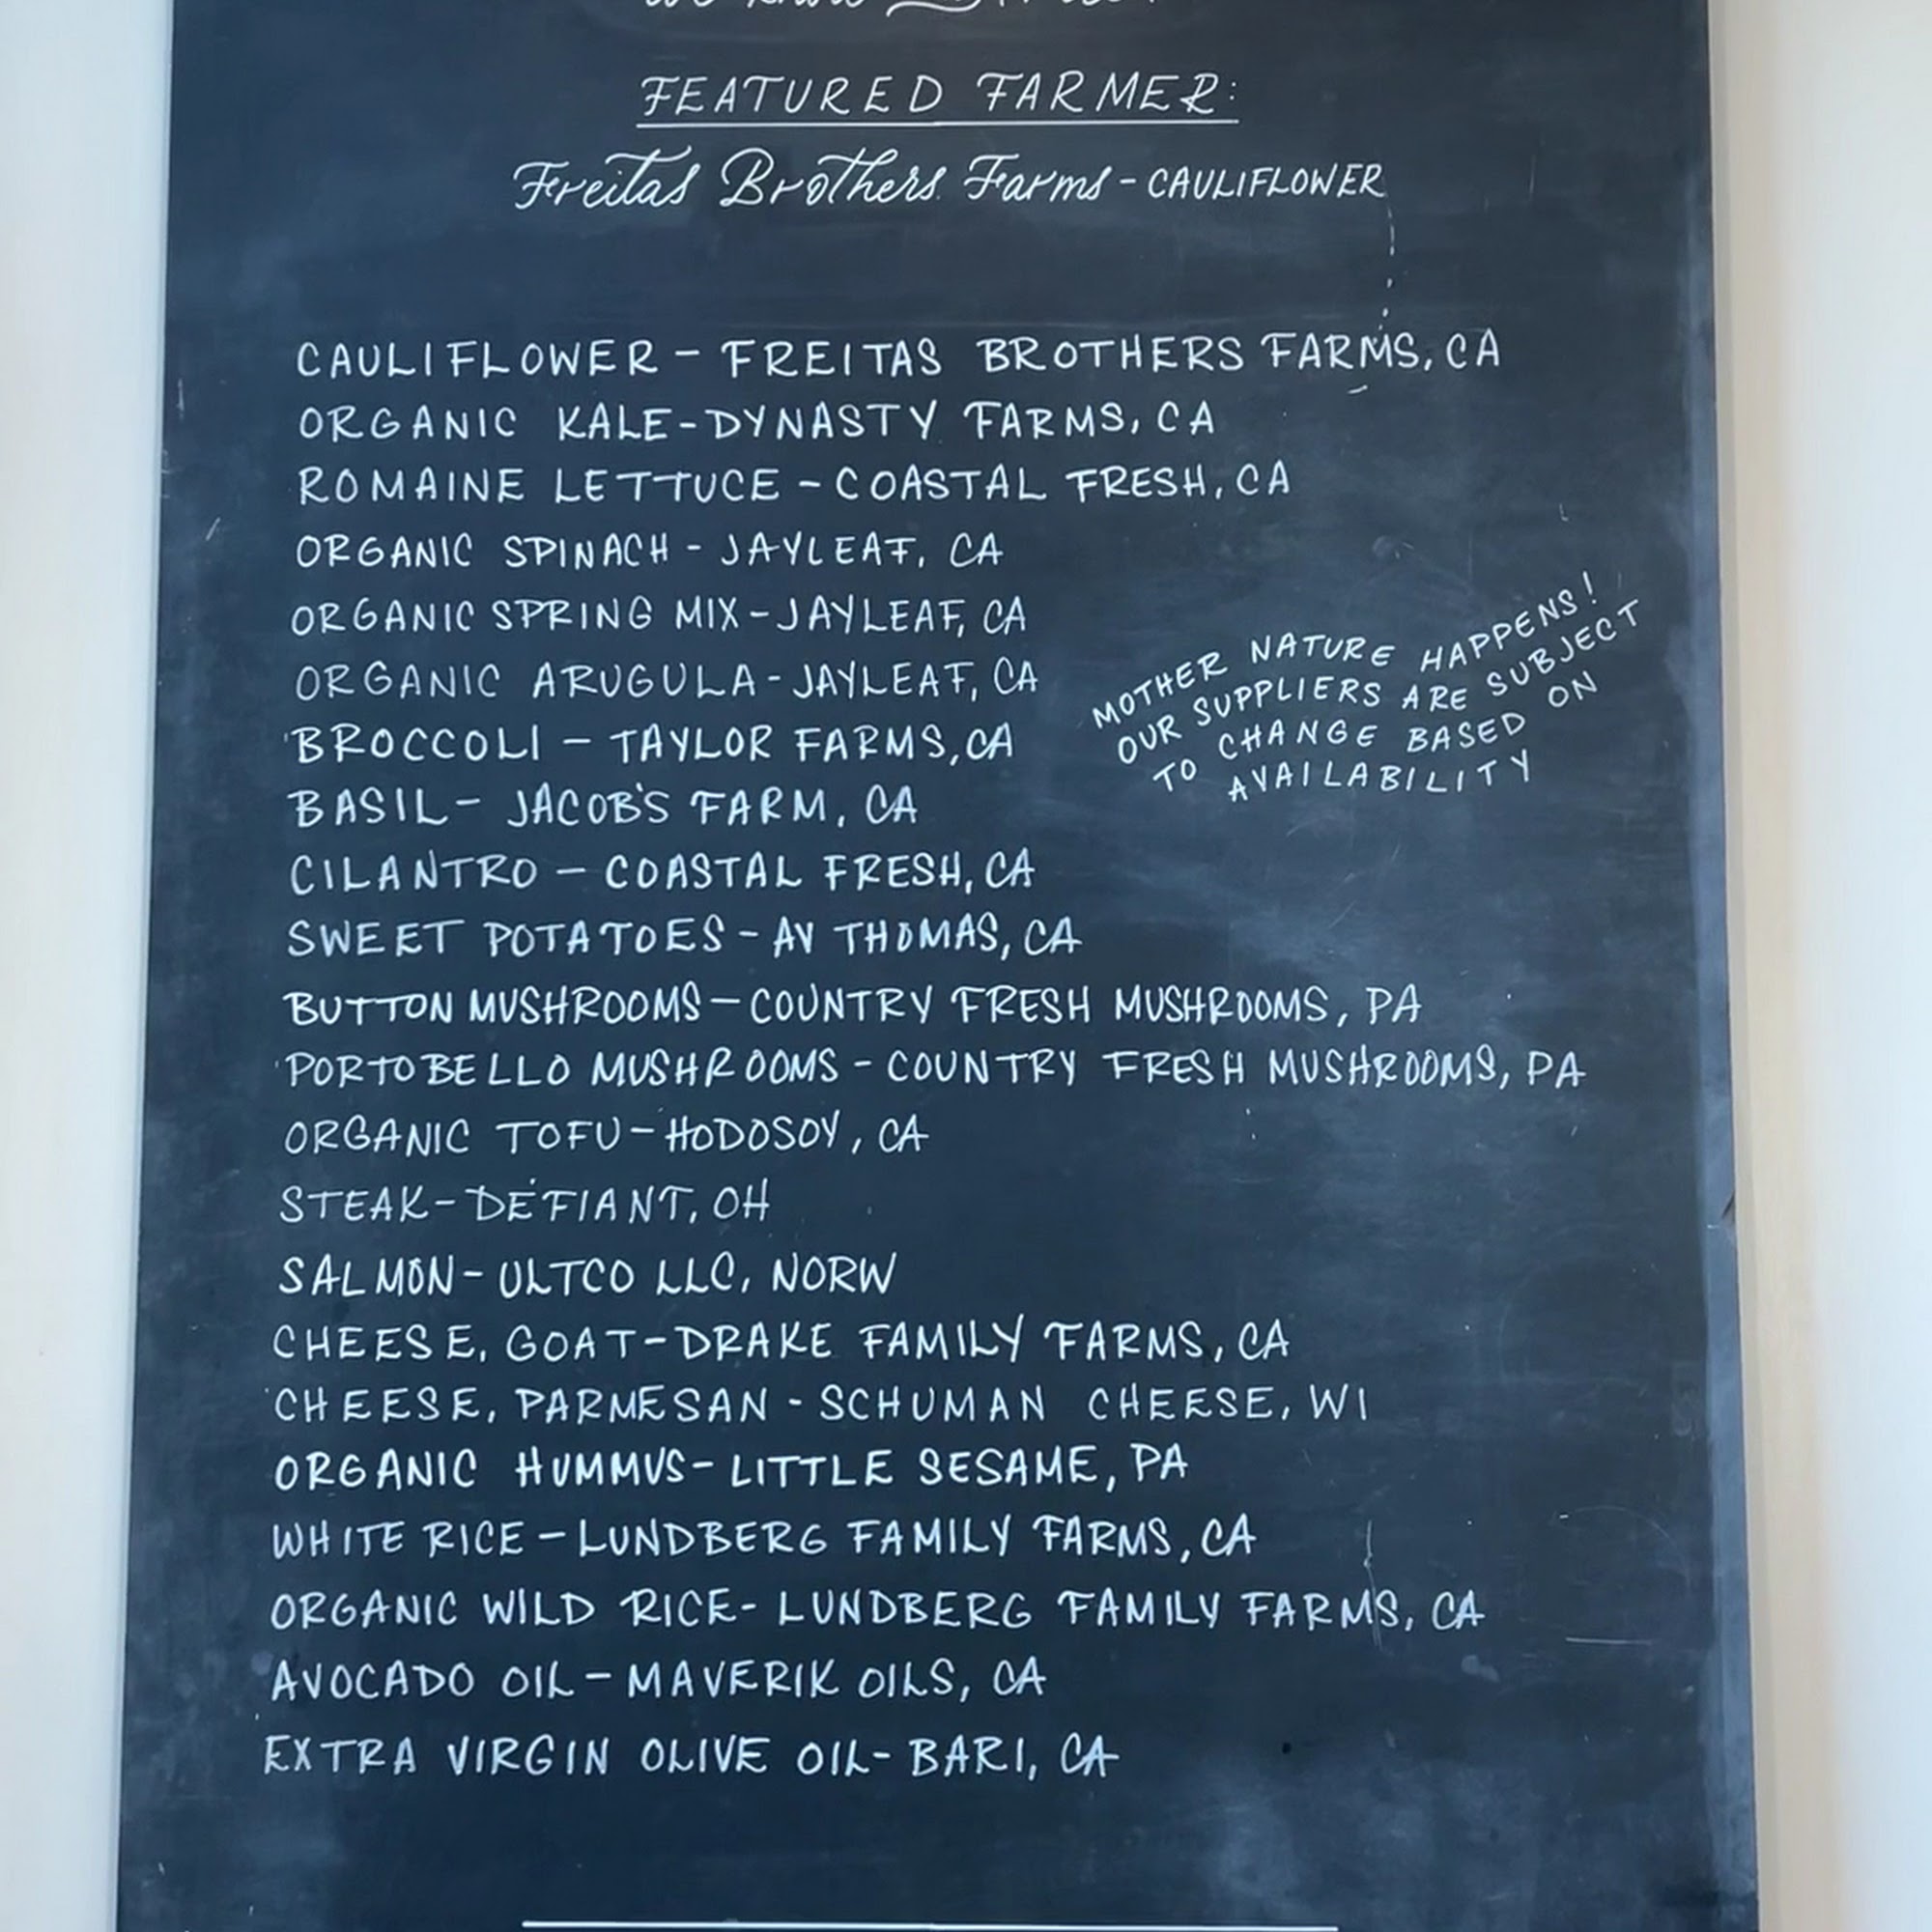 FEATURED FARMER:
Freitas Brothers Farms - CAULIFLOWER
CAULIFLOWER - FREITAS BROTHERS FARMS, CA
ORGANIC KALE - DYNASTY FARMS, CA
ROMAINE LETTUCE - COASTAL FRESH, CA
ORGANIC SPINACH - JAYLEAF, CA
ORGANIC SPRING MIX - JAYLEAF, CA
ORGANIC ARUGULA - JAYLEAF, CA
BROCCOLI - TAYLOR FARMS, CA
BASIL - JACOB'S FARM, CA
CILANTRO - COASTAL FRESH, CA
SWEET POTATOES - AV THOMAS, CA
BUTTON MUSHROOMS - COUNTRY FRESH MUSHROOMS, PA
PORTOBELLO MUSHROOMS - COUNTRY FRESH MUSHROOMS, PA
ORGANIC TOFU - HODOSOY, CA
STEAK - DEFIANT, OH
SALMON - ULTCO LLC, NORW
CHEESE, GOAT - DRAKE FAMILY FARMS, CA
CHEESE, PARMESAN - SCHUMAN CHEESE, WI
ORGANIC HUMMUS - LITTLE SESAME, PA
WHITE RICE - LUNDBERG FAMILY FARMS, CA
ORGANIC WILD RICE - LUNDBERG FAMILY FARMS, CA
AVOCADO OIL - MAVERIK OILS, CA
EXTRA VIRGIN OLIVE OIL - BARI, CA
MOTHER NATURE HAPPENS!
OUR SUPPLIERS ARE SUBJECT
TO CHANGE BASED ON
AVAILABILITY